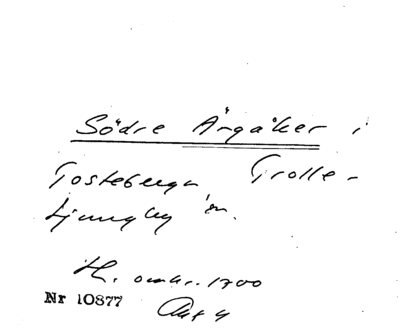 Södre Ängåker i
Tosteberga Trolle-
Ljungby sn.
H. omkr. 1700
Nr 10877 Akt 4